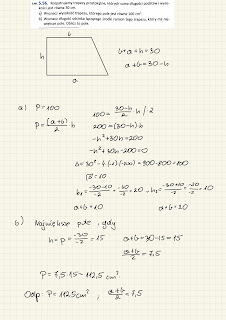 5.56. Rozpatrujemy trapezy prostokątne, których suma długości podstaw i wysokości jest równa 30 cm.
a) Wyznacz wysokość trapezu, którego pole jest równe 100 cm².
b) Wyznacz długość odcinka łączącego środki ramion tego trapezu, który ma największe pole. Oblicz to pole.
b
h
a
b+a+h=30
a+b=30-h
a) P=100
P = (a+b)/2 h
100 = (30-h)/2 h /·2
200=(30-h)h
-h²+30h=200
-h²+30h-200=0
Δ=30²-4·(-1)·(-200)=900-800=100
√Δ=10
h₁=(-30-10)/-2=-40/-2=20 h₂=(-30+10)/-2=-20/-2=10
a+b=10 a+b=20
b) Największe pole, gdy
h=p=-30/-2=15 a+b=30-15=15
(a+b)/2=7,5
P=7,5·15=112,5 cm²
Odp: P=112,5cm², (a+b)/2=7,5